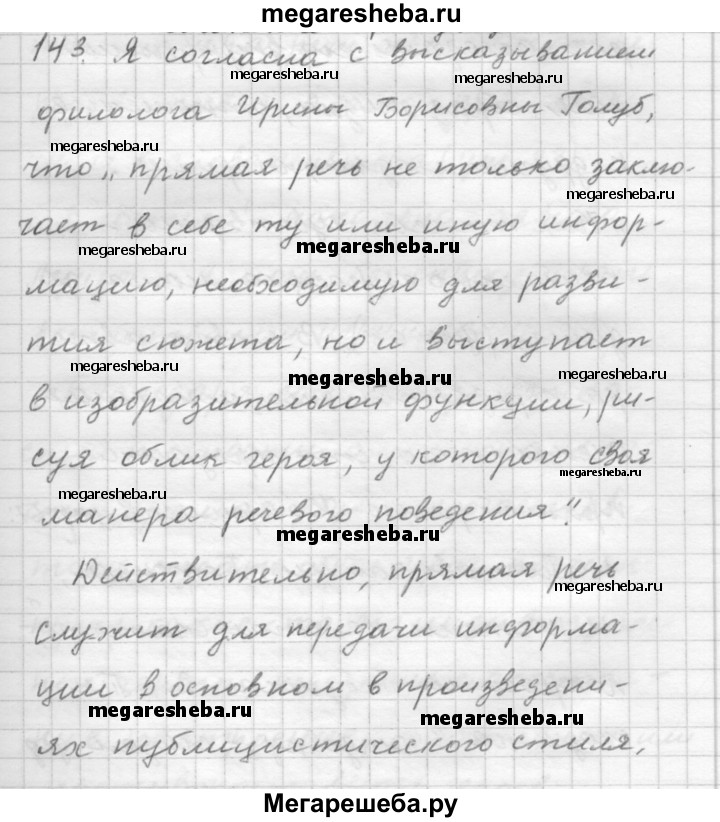 megaresheba.ru
143. Я согласна с высказыванием
megaresheba.ru megaresheba.ru
филолога Ирины Борисовны Голуб,
megaresheba.ru
что „прямая речь не только заклю-
megaresheba.ru
чает в себе ту или иную инфор-
megaresheba.ru megaresheba.ru
мацию, необходимую для разви-
тия сюжета, но и выступает
megaresheba.ru megaresheba.ru megaresheba.ru
в изобразительной функции, ри-
суя облик героя, у которого своя
megaresheba.ru
megaresheba.ru
манера речевого поведения".
megaresheba.ru
Действительно, прямая речь
megaresheba.ru
служит для передачи информа-
ции в основном в произведени-
megaresheba.ru megaresheba.ru
ях публицистического стиля,
Мегарешеба.ру